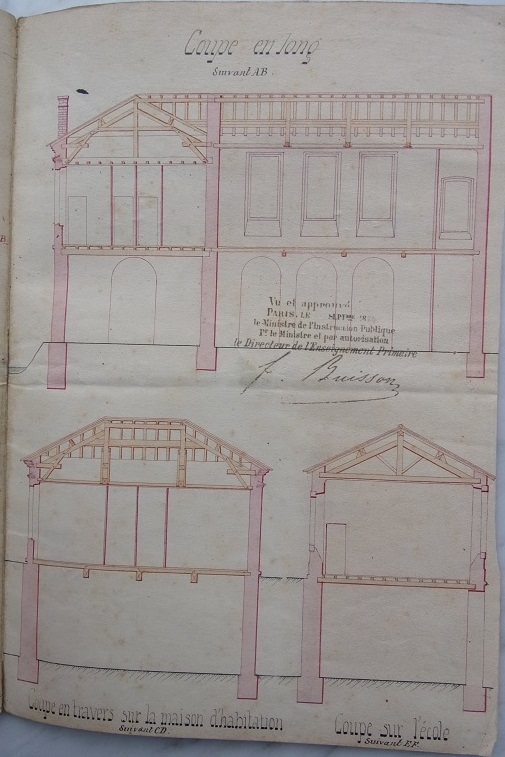 Coupe en long
Suivant AB.
B
Vu et approuvé
PARIS, LE SEPT^BRE
le Ministre de l'Instruction Publique
P^r le Ministre et par autorisation
le Directeur de l'Enseignement Primaire
F. Buisson
Coupe en travers sur la maison d'habitation
Suivant CD.
Coupe sur l'école
Suivant EF.